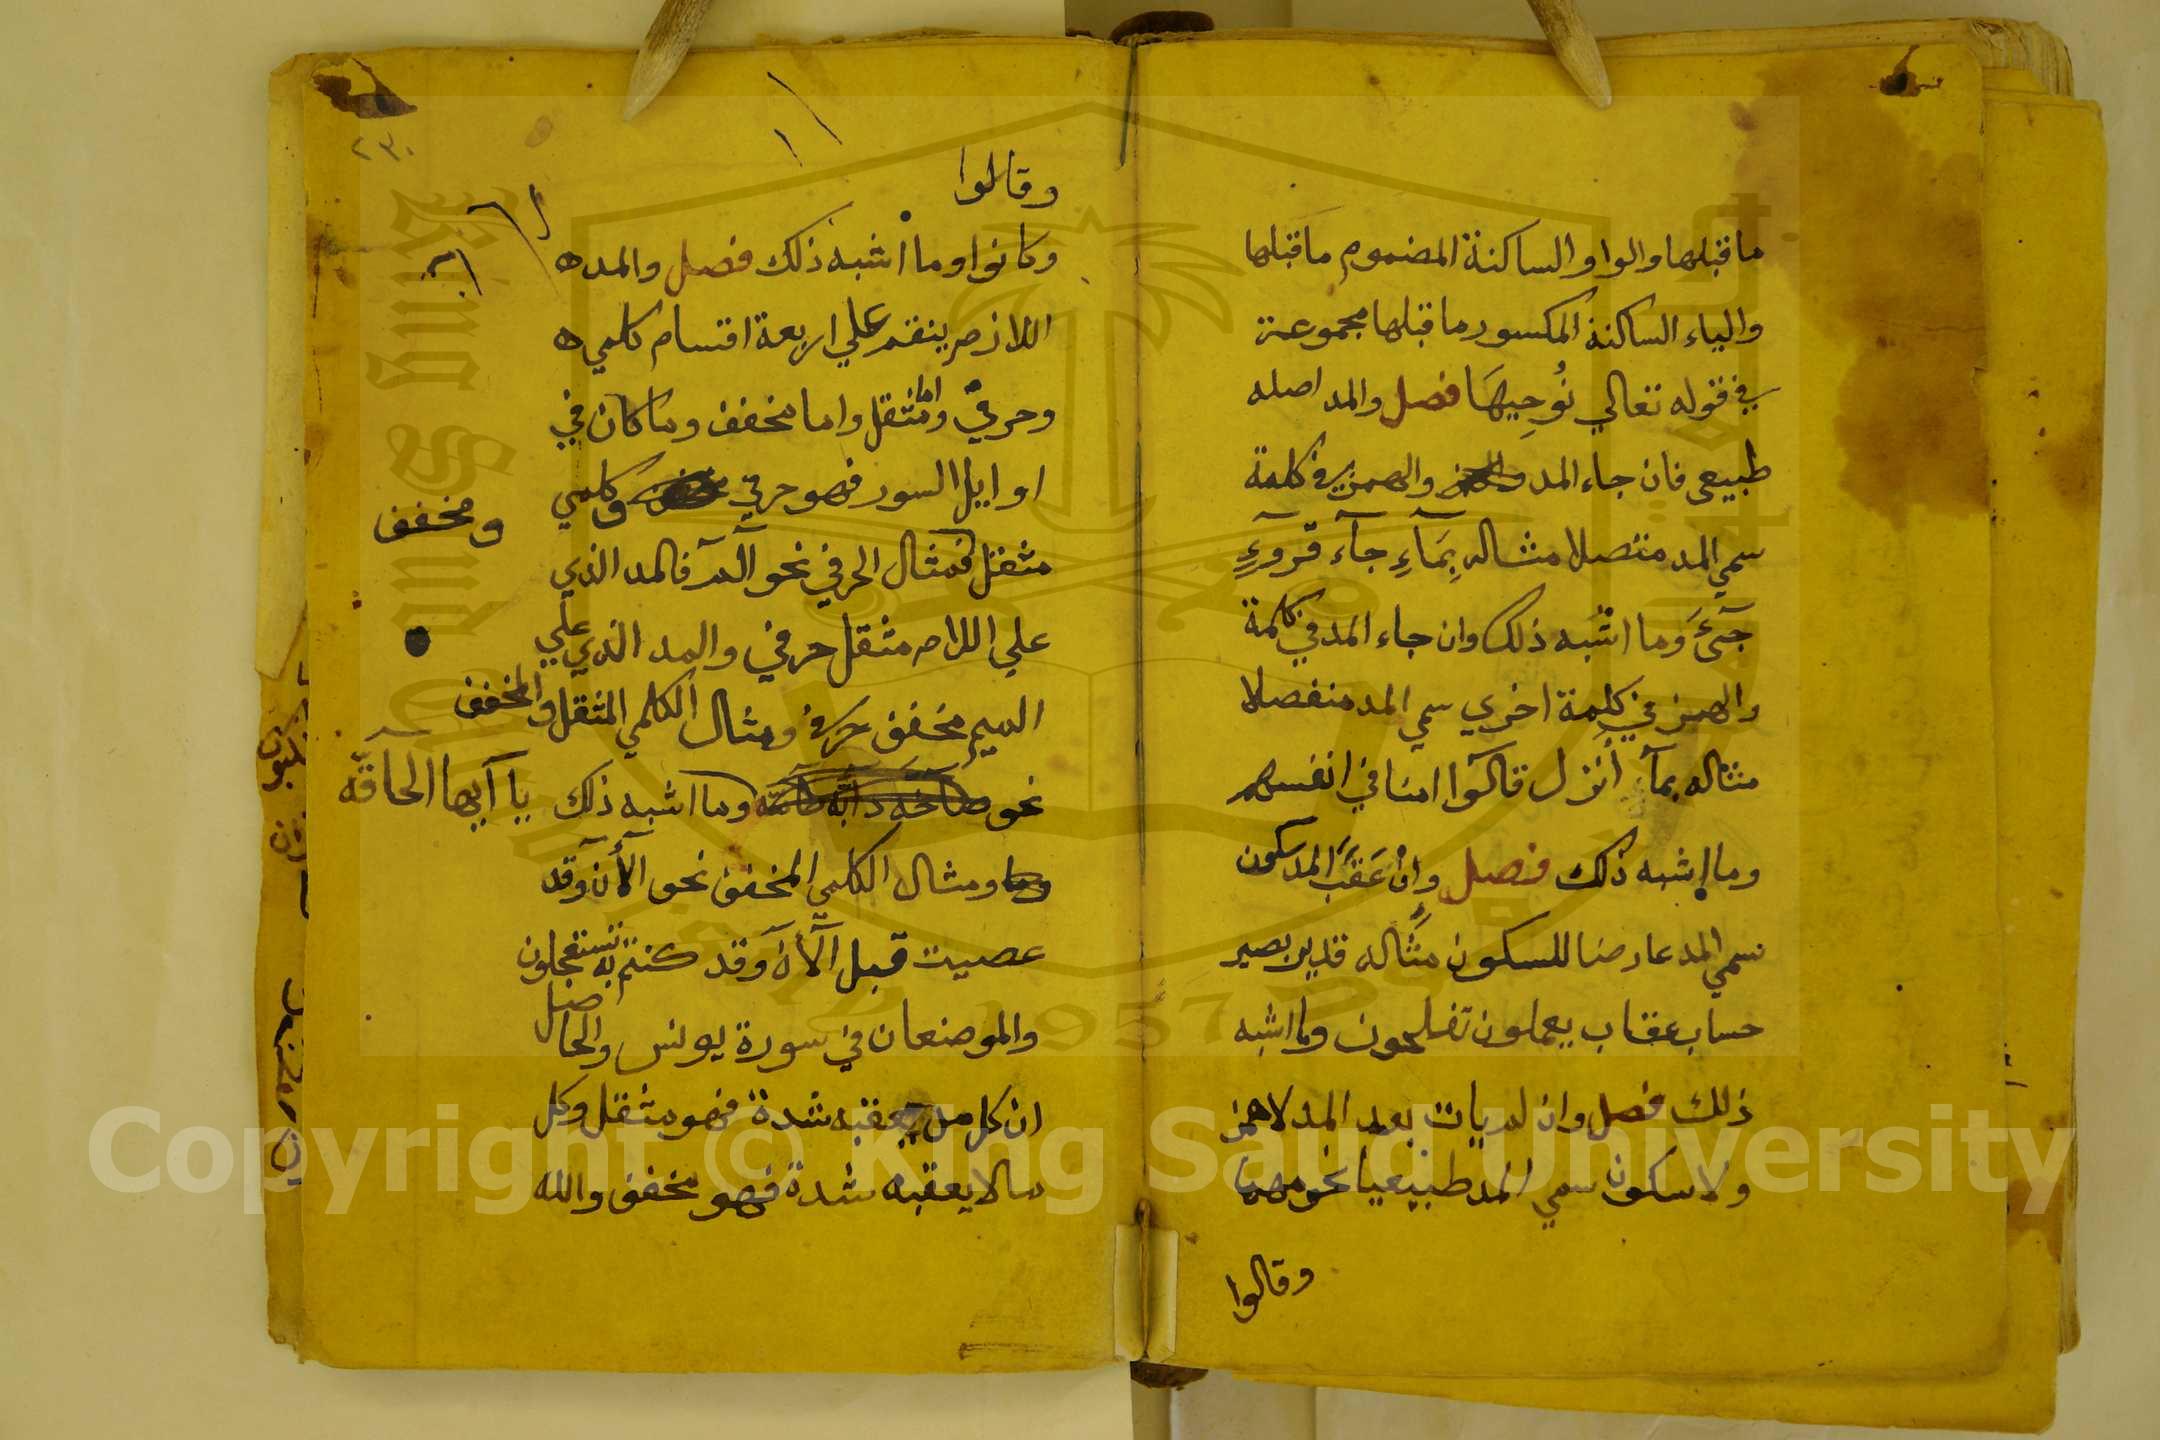 ما قبلها والواو الساكنة المضموم ما قبلها
والياء الساكنة المكسور ما قبلها مجموعة
في قوله تعالي نُوحِيهَا فصل والمد اصله
طبيعي فان جاء المد والهمز في كلمة
سمي المد متصلا مثاله بِمَآءِ جآء قروٓءٍ
جيٓءَ وما اشبه ذلك وان جاء المد في كلمة
والهمز في كلمة اخري سمي المد منفصلا
مثاله بمآ أنزل قالوٓا امنا في انفسهم
وما اشبه ذلك فصل وانْ عَقَبَ المد سكون
سمي المد عارضا للسكون مثاله قدير بصير
حساب عقاب يعملون تفلحون وما اشبه
ذلك فصل وان لم يات بعد المد لا همز
ولا سكون سمي المد طبيعيا نحو مهين
وقالوا
٢٣٠
وقالوا
وكانوا وما اشبه ذلك فصل والمد ه
اللازم ينقسم علي اربعة اقسام كلمي ه
وحرفيّ واما مثقل واما مخفف وما كان في
اوايل السور فهو حرفي وكلمي
ومخفف
مثقل فمثال الحرفي نحو آلمٓ فالمد الذي
علي اللام مثقل حرفي والمد الذي علي
الميم مخفف حرفي ومثال الكلمي المثقل والمخفف
نحو صآخه دآبّه طآمّه وما اشبه ذلك يا آيها الحآقّه
وما ومثال الكلمي المخفف نحو الآن وقد
عصيت قبل آلآن وقد كنتم به تستعجلون
والموضعان في سورة يونس والحاصل
ان كل مد يعقبه شدة فهو مثقل وكل
ما لا يعقبه شدة فهو مخفف والله
Copyright © King Saud University
1957